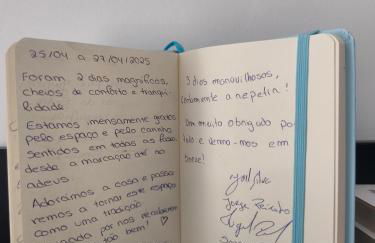 25/04 a 27/04/2025
Foram 2 dias magníficos,
cheios de conforto e tranqui-
lidade
Estamos imensamente gratos
pelo espaço e pelo carinho
sentidos em todas as fases,
desde a marcação até ao
adeus.
Adorámos a casa e
remos a tornar este espaço
como uma tradição
por nos
tão bem! ♡
3 dias maravilhosos,
certamente a repetir!
Um muito obrigado por
tudo e vemo-mos em
breve!
Jorge